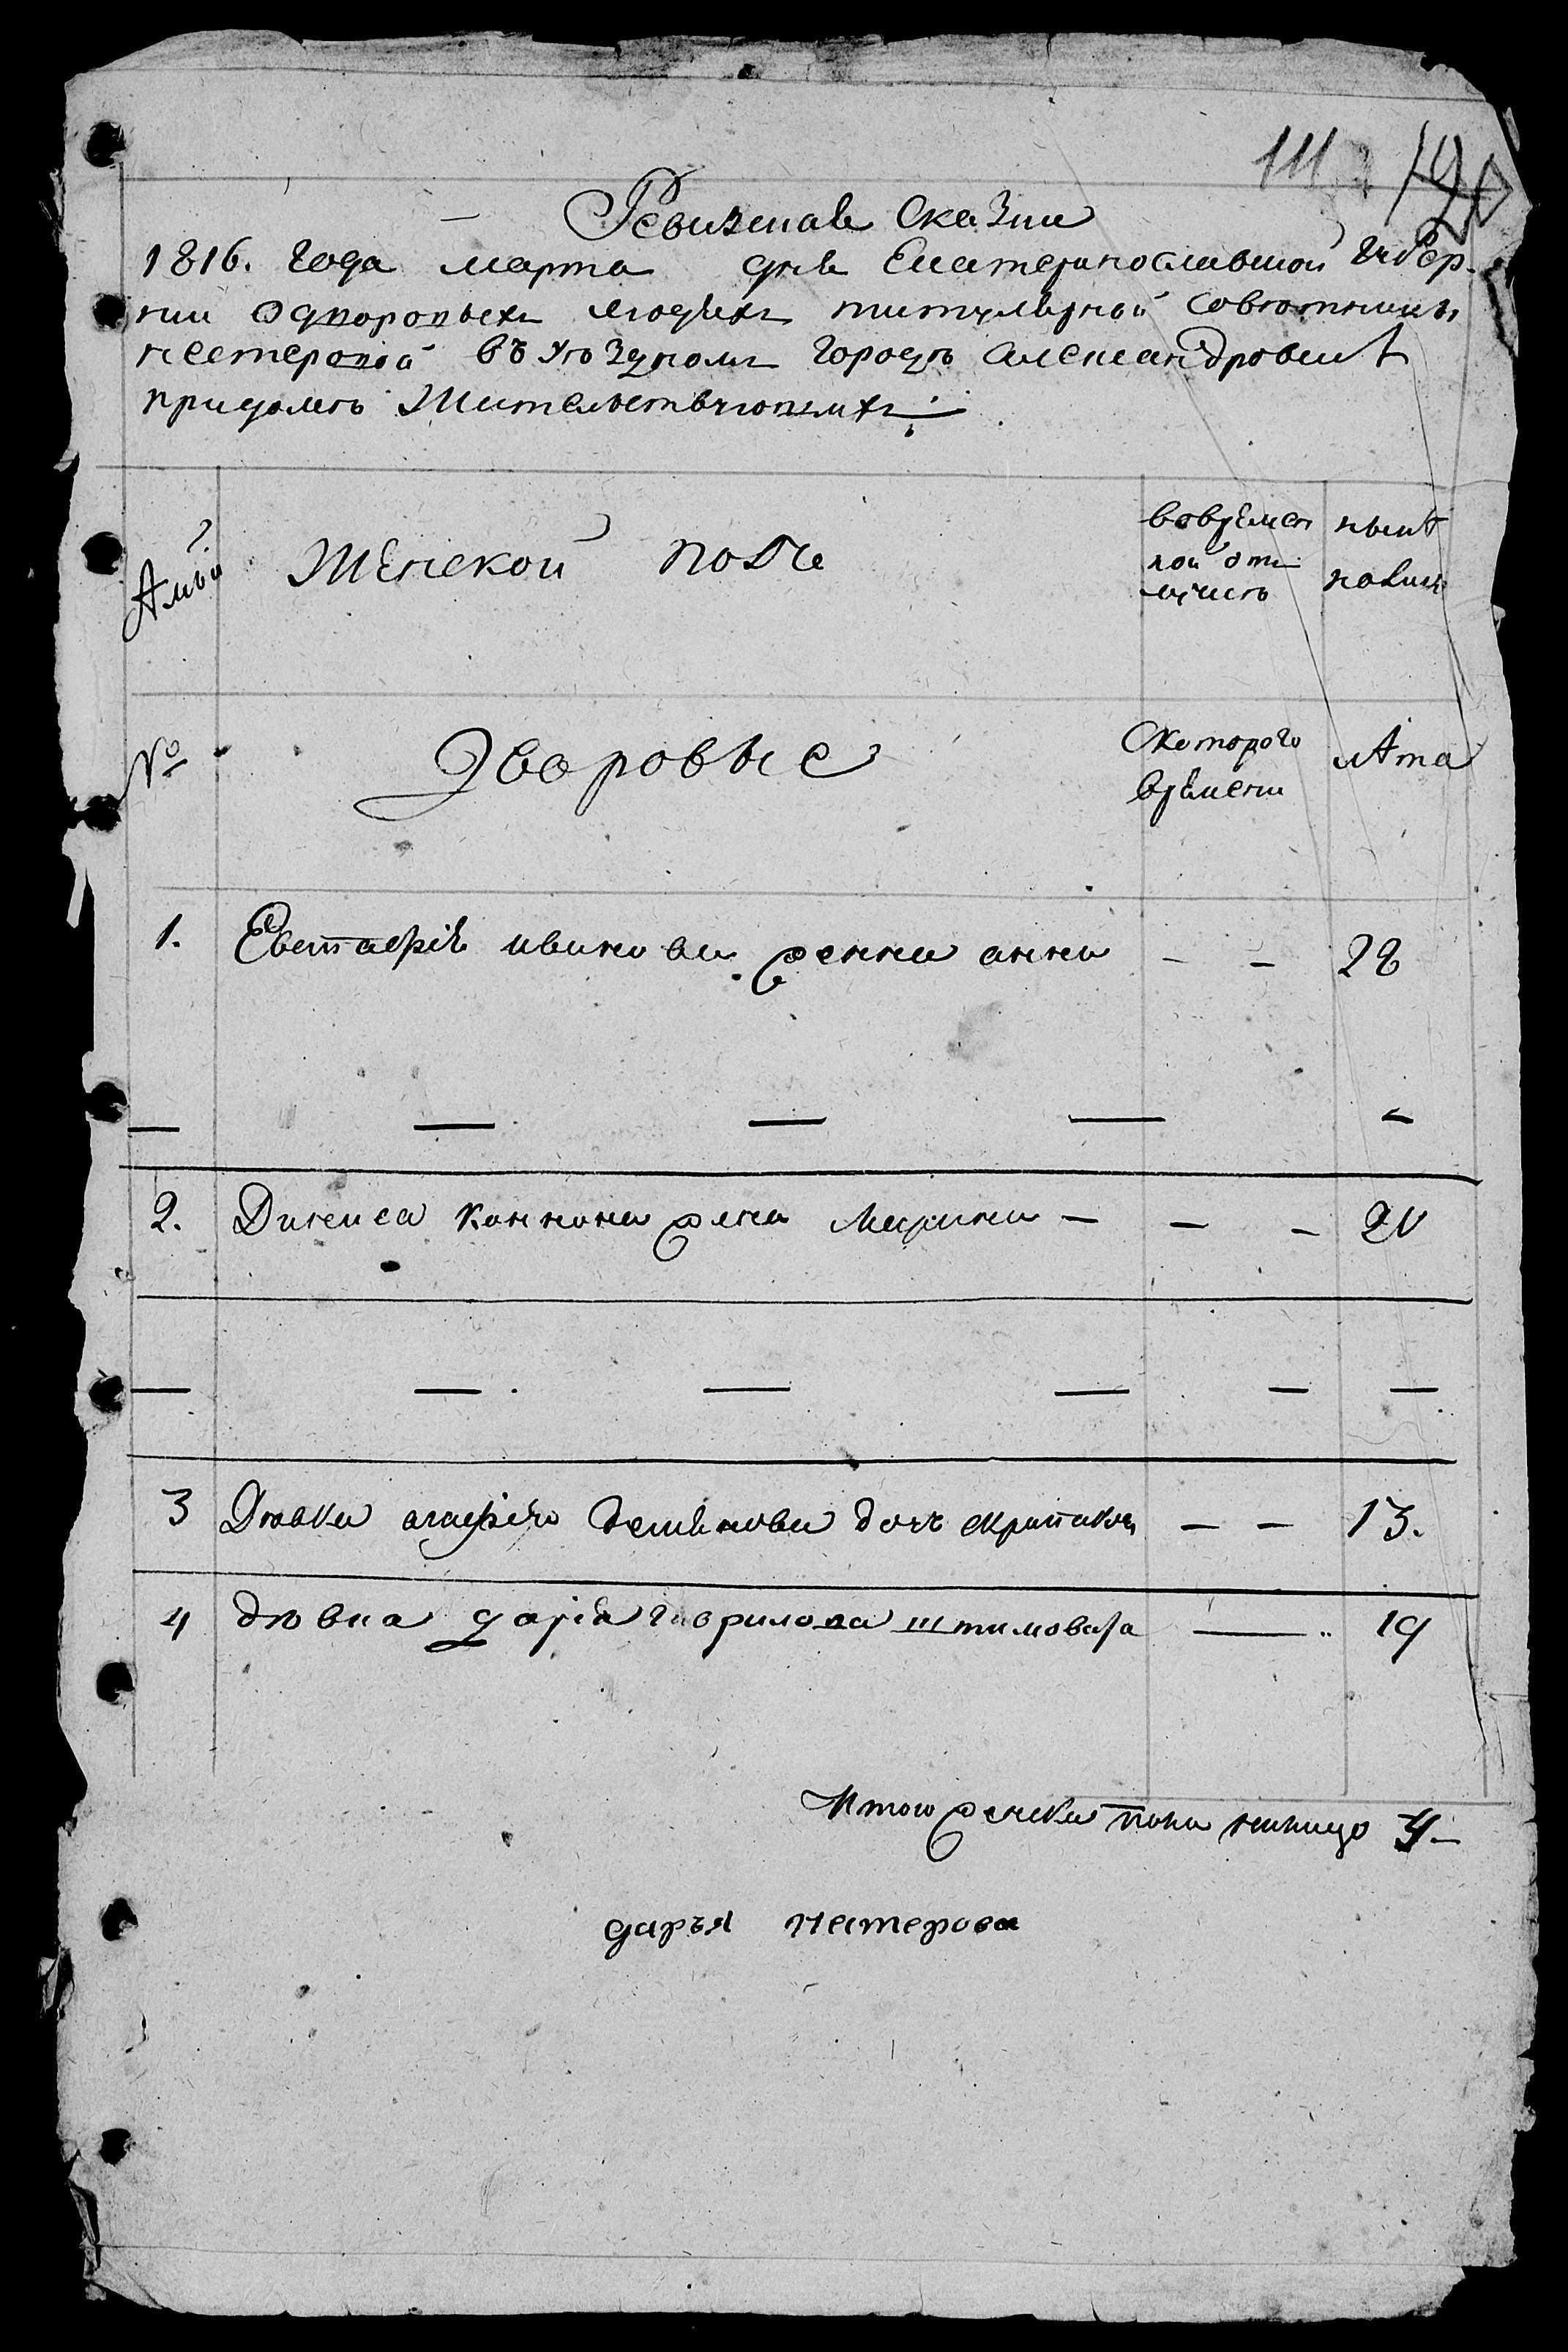 111
Ревизская Сказка
1816. года марта дня Екатеринославской Губер-
нии о дворовыхъ людяхъ титулярной советницы
нестеровой въ уѣздномъ городѣ александровскѣ
придомѣ жительствующихъ
Женской полъ
вовремен
ной отлучкѣ
нынѣ
налицо
№
Дворовые
Скоторого
времени
лѣта
1. Евстафія иванова женна анна — — 28
— — — — —
2. Дениса Кононова жена Марина — — — 20
— — — — — —
3 Дѣвка агафія Демянова дочъ скрипакъ — — 13.
4 дѣвка дарія гаврилова штимовата — 19
Итого женска пола налицо 4 —
даръя Нестерова